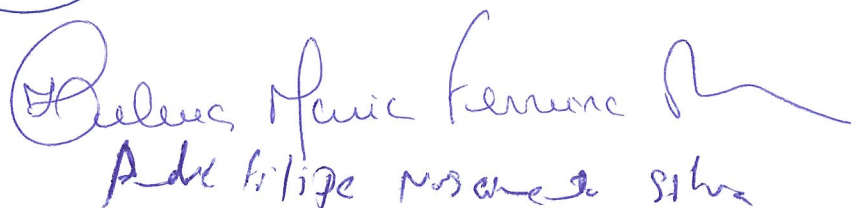 Helena Maria Ferreira
André Filipe Nascimento Silva